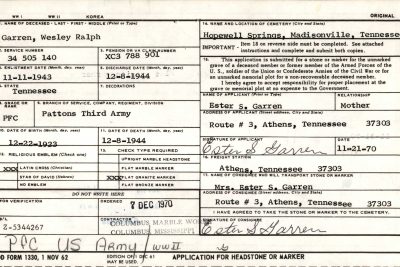 WW I WW II KOREA ORIGINAL
NAME OF DECEASED - LAST - FIRST - MIDDLE (Print or Type)
Garren, Wesley Ralph
14. NAME AND LOCATION OF CEMETERY (City and State)
Hopewell Springs, Madisonville, Tennessee
SERVICE NUMBER
34 505 140
5. PENSION OR VA CLAIM NUMBER
XC3 788 901
IMPORTANT - Item 18 on reverse side must be completed. See attached
instructions and complete and submit both copies.
ENLISTMENT DATE (Month, day, year)
11-11-1943
12-8-1944
15. This application is submitted for a stone or marker for the unmarked
grave of a deceased member or former member of the Armed Forces of the
U.S., soldier of the Union or Confederate Armies of the Civil War or for
an unmarked memorial plot for a non-recoverable deceased member.
I hereby agree to accept responsibility for proper placement at the
grave or memorial plot at no expense to the Government.
STATE
Tennessee
7. DECORATIONS
NAME OF APPLICANT (Print or Type)
Ester S. Garren
RELATIONSHIP
Mother
GRADE OR
PFC
9. BRANCH OF SERVICE, COMPANY, REGIMENT, DIVISION
Pattons Third Army
Route # 3, Athens, Tennessee 37303
DATE OF BIRTH (Month, day, year)
12-22-1923
11. DATE OF DEATH (Month, day, year)
12-8-1944
SIGNATURE OF APPLICANT
Ester S Garren
DATE
11-21-70
RELIGIOUS EMBLEM (Check one)
13. CHECK TYPE REQUIRED
UPRIGHT MARBLE HEADSTONE
XXX LATIN CROSS (Christian)
FLAT MARBLE MARKER
STAR OF DAVID (Hebrew)
XXX FLAT GRANITE MARKER
NO EMBLEM
FLAT BRONZE MARKER
16. FREIGHT STATION
Athens, Tennessee 37303
NAME OF CONSIGNEE WHO WILL TRANSPORT STONE OR MARKER
Mrs. Ester S. Garren
DO NOT WRITE HERE
7 DEC 1970
ADDRESS OF CONSIGNEE (City and State)
Route # 3, Athens, Tennessee 37303
I HAVE AGREED TO TAKE THE STONE OR MARKER TO THE CEMETERY.
B/L NO.
Z-5344267
CONTRACTOR
COLUMBUS MARBLE WORKS
COLUMBUS, MISSISSIPPI
SIGNATURE OF CONSIGNEE
Ester S Garren
PFC US Army WW II
FORM 1330, 1 NOV 62
EDITION OF 1 DEC 61
MAY BE USED.
APPLICATION FOR HEADSTONE OR MARKER